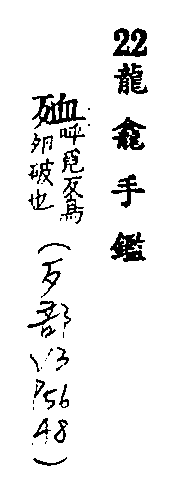 22龍龕手鑑
殈呼覓反鳥
夘破也
(歹部V3
P56
A8)